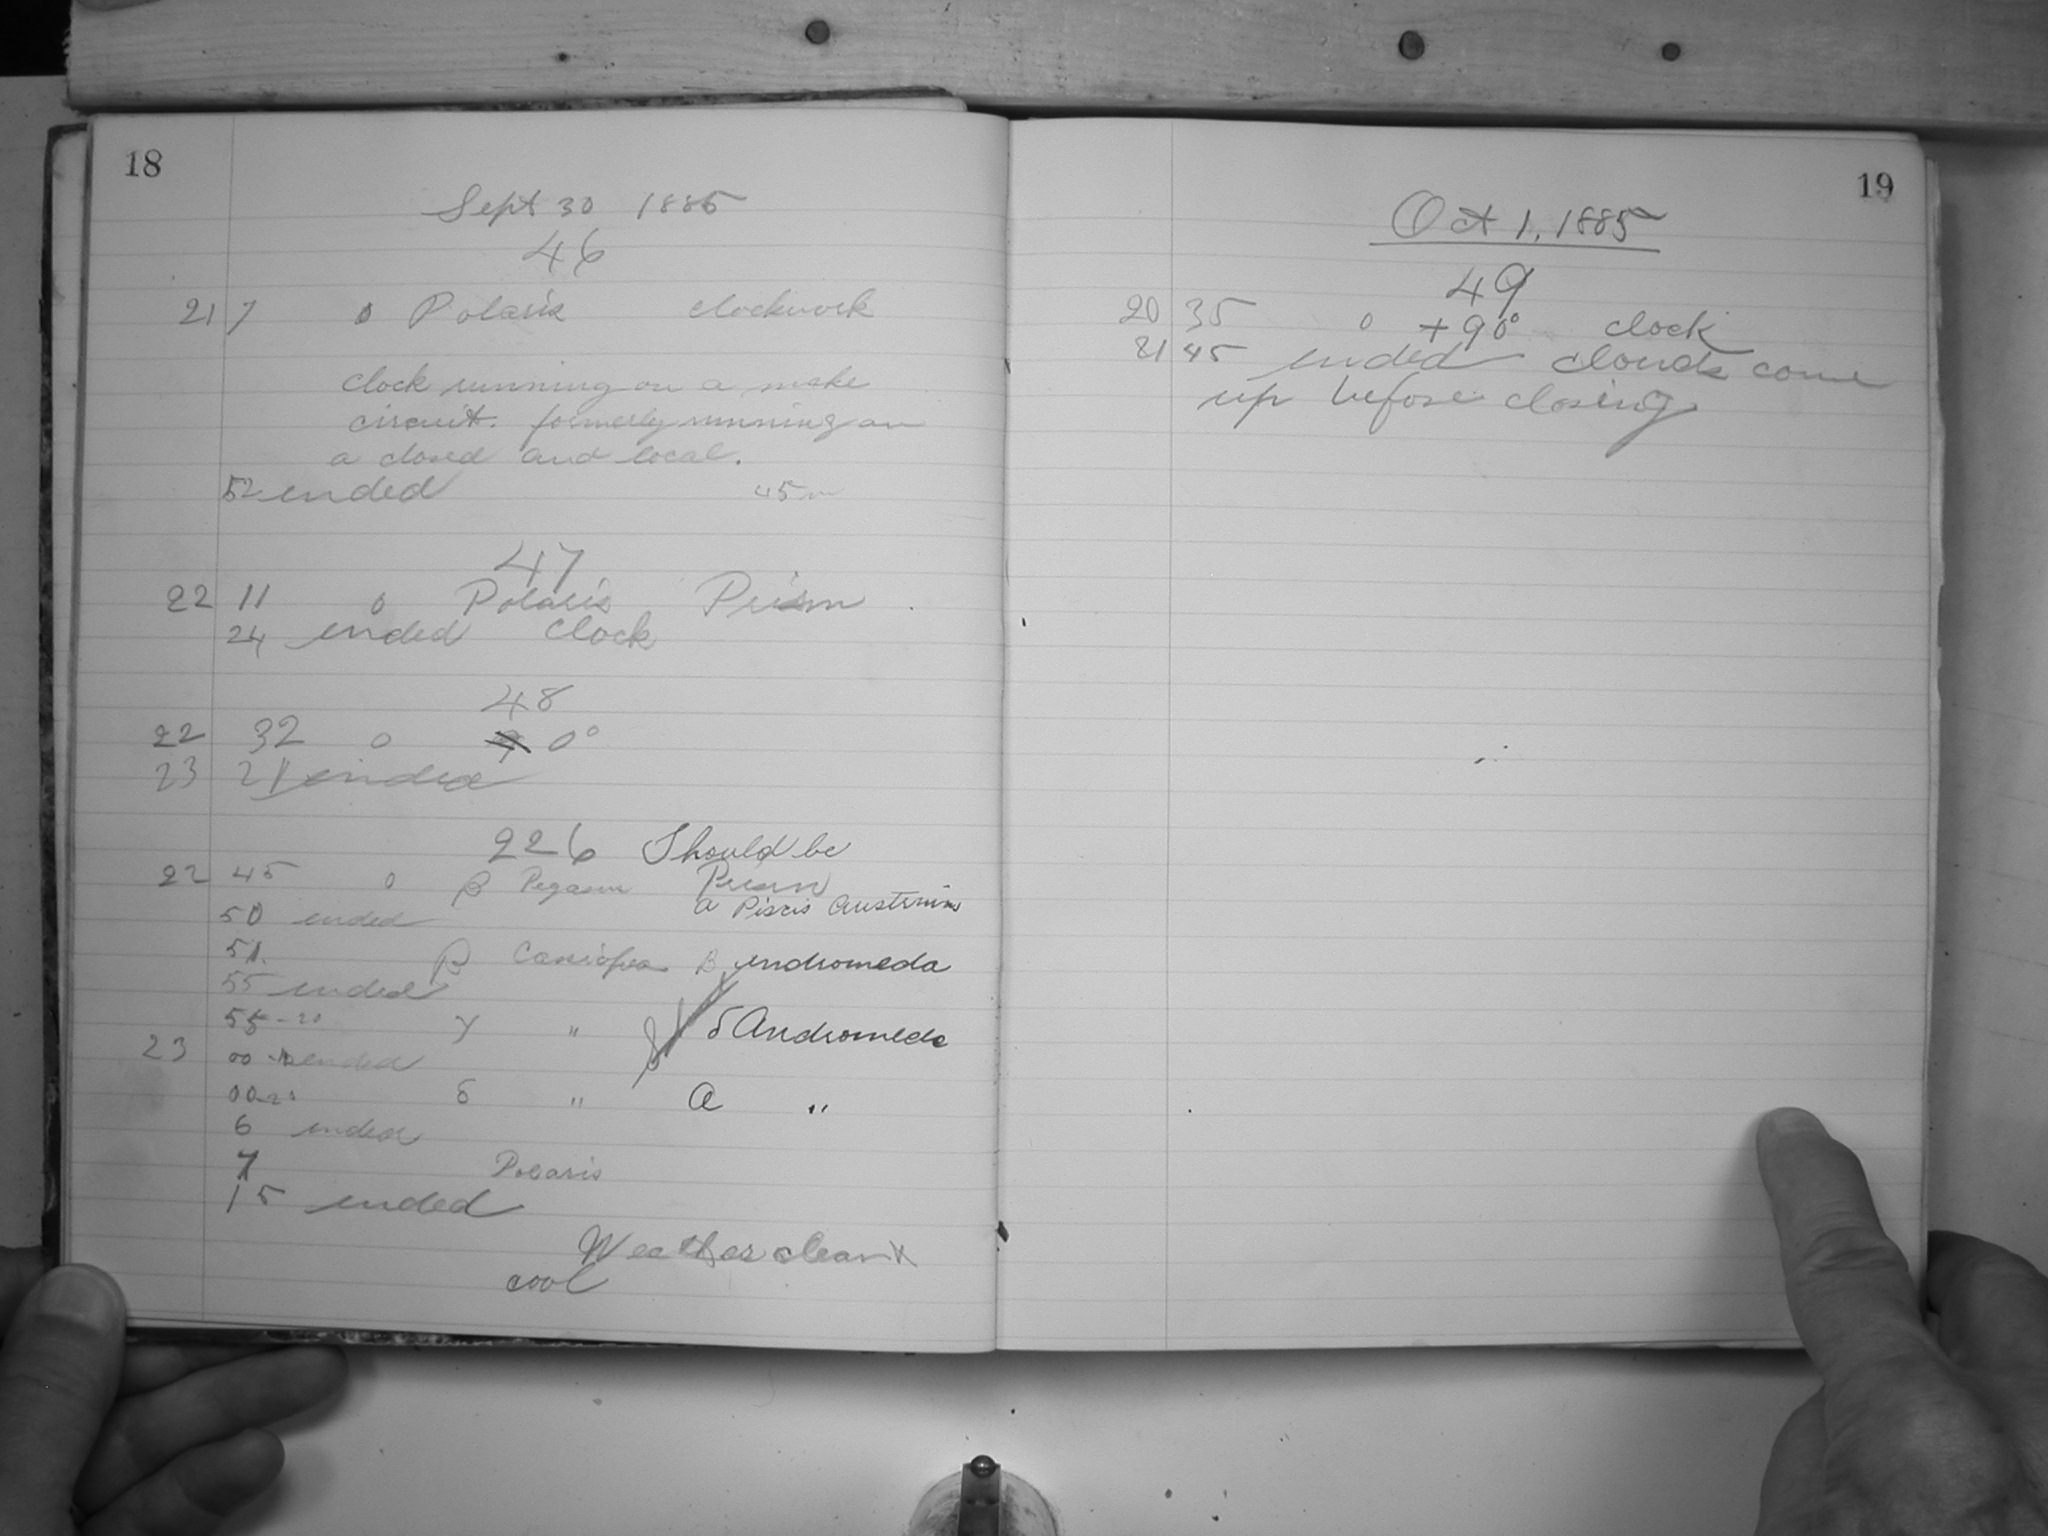 18
Sept 30 1885
46
21 7 0 Polaris clockwork
clock running on a make
circuit. formerly running on
a closed and local.
52 ended 45m
47
22 11 0 Polaris Prism
24 ended clock
48
22 32 0 0°
23 21 ended
226 Should be
22 45 0 β Pegasus Prism
α Piscis Austrinis
50 ended
51 β Cassiopea β Andromeda
55 ended
55-20 γ " δ Andromeda
23 00 ended
00-20 δ " α "
6 ended
7 Polaris
15 ended
Weather clear &
cool
19
Oct 1, 1885
49
20 35 0 +90° clock
21 45 ended clouds come
up before closing